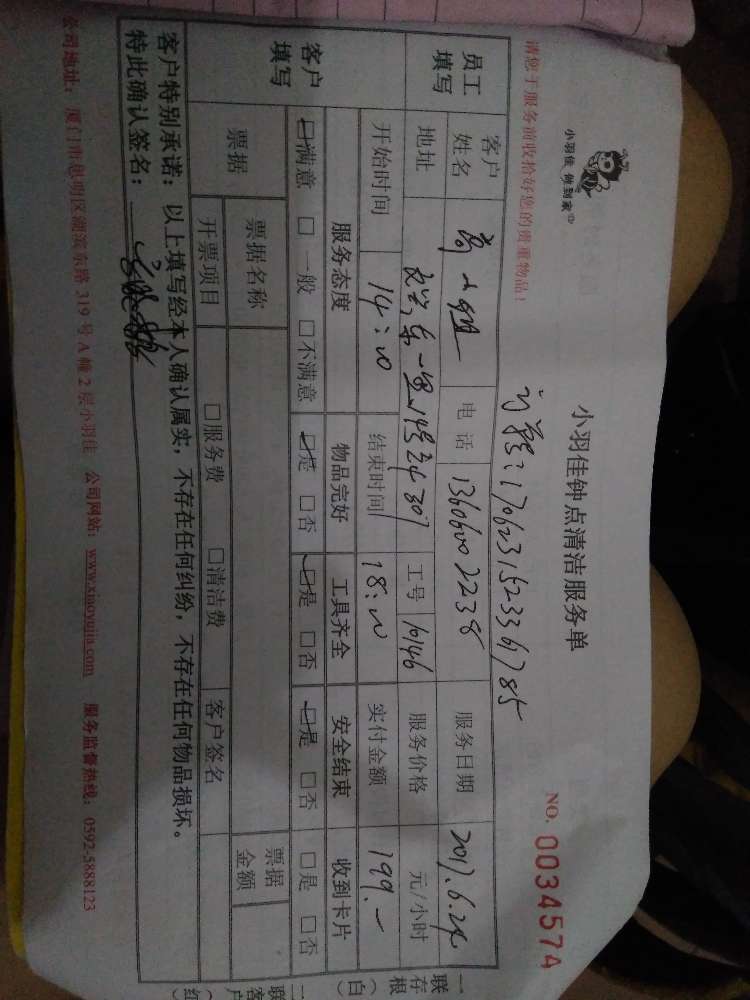 小羽佳 做到家
小羽佳钟点清洁服务单
NO. 0034574
请您于服务前收拾好您的贵重物品！
170623152336785
员工填写
客户姓名
电话 13606002238
服务日期 2017.6.24
地址
工号 16146
服务价格 元/小时
开始时间 14:00
结束时间 18:00
实付金额 199.-
客户填写
服务态度 物品完好 工具齐全 安全结束 收到卡片
☑满意 □一般 □不满意 ☑是 □否 ☑是 □否 ☑是 □否 □是 □否
票据 票据名称 票据金额
开票项目 □服务费 □清洁费 客户签名
客户特别承诺：以上填写经本人确认属实，不存在任何纠纷，不存在任何物品损坏。
特此确认签名：
公司地址：厦门市思明区湖滨东路 319 号 A 幢 2 层小羽佳 公司网站：www.xiaoyujia.com 服务监督热线：0592-5888123
一联存根（白）